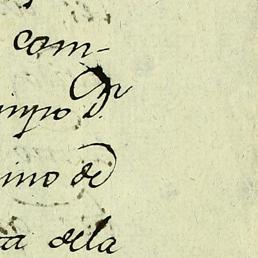 com-
mpo D.n
ino de
ta dela